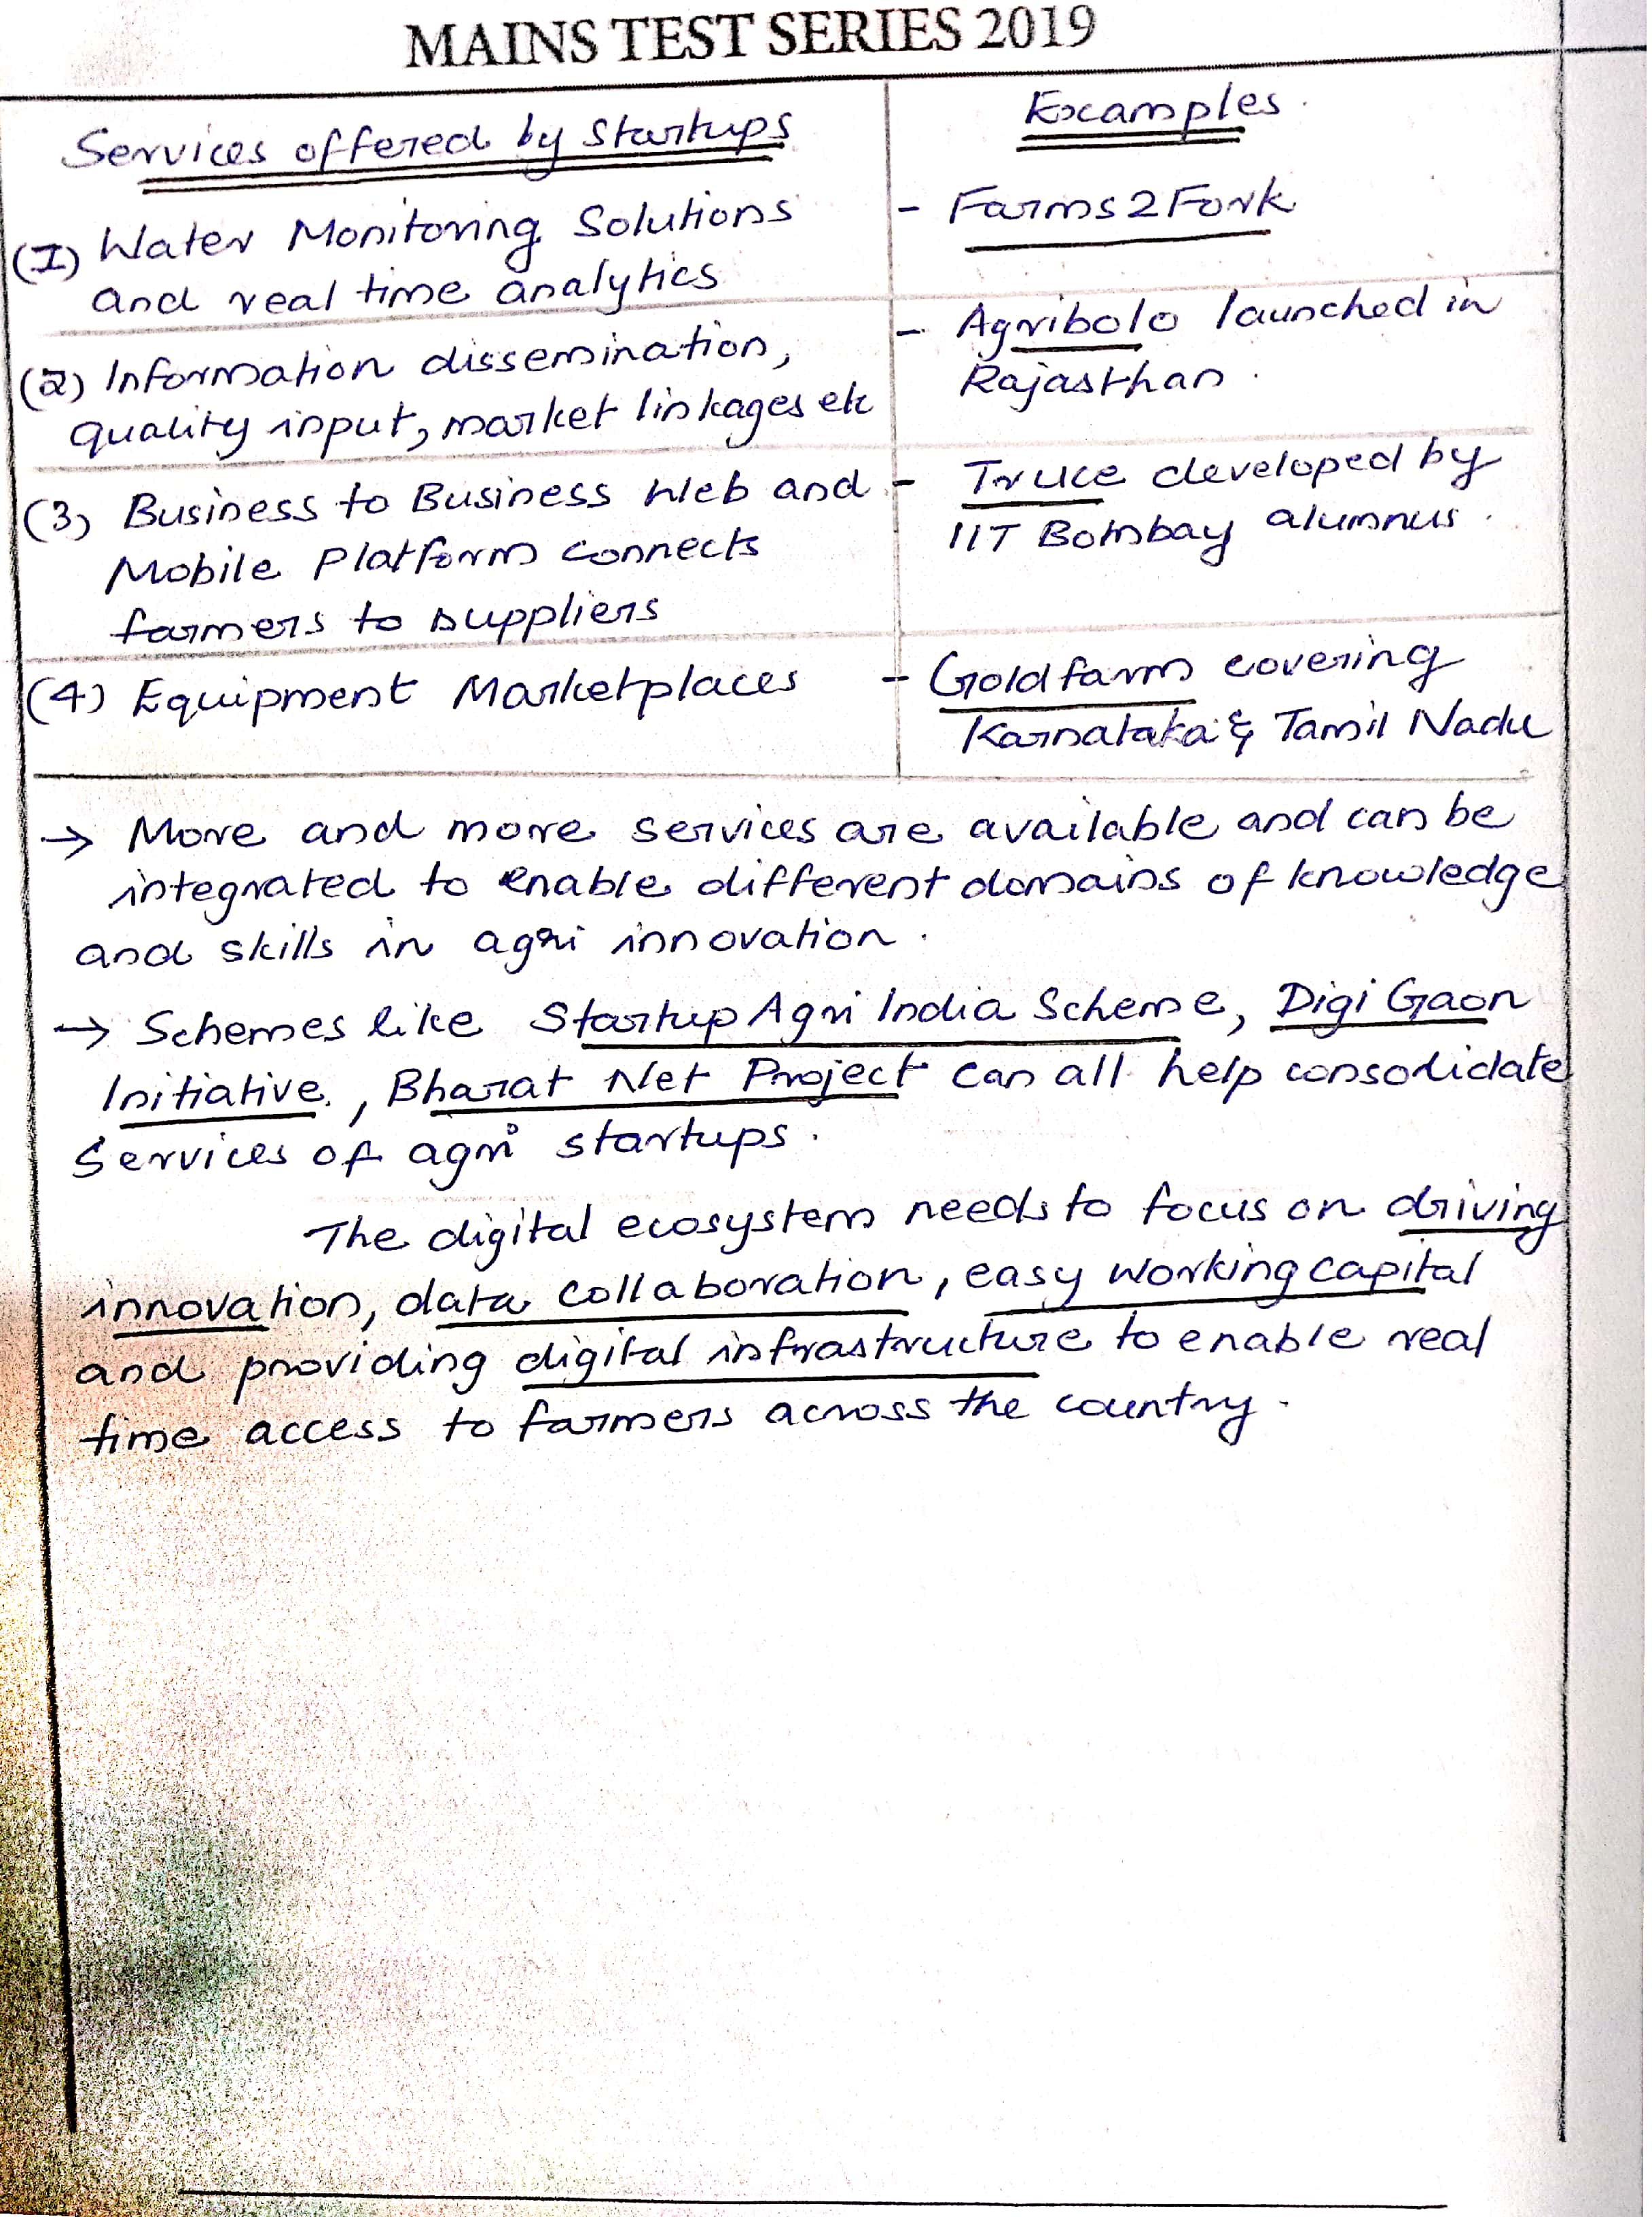 MAINS TEST SERIES 2019
Services offered by Startups
Examples
(1) Water Monitoring Solutions
and real time analytics
- Farms2Fork
(2) Information dissemination,
quality input, market linkages etc
- Agribolo launched in
Rajasthan.
(3) Business to Business Web and
Mobile Platform connects
farmers to suppliers
- Truce developed by
IIT Bombay alumnus.
(4) Equipment Marketplaces
- Goldfarm covering
Karnataka & Tamil Nadu
→ More and more services are available and can be
integrated to enable different domains of knowledge
and skills in agri innovation.
→ Schemes like Startup Agri India Scheme, Digi Gaon
Initiative, Bharat Net Project can all help consolidate
services of agri startups.
The digital ecosystem needs to focus on driving
innovation, data collaboration, easy working capital
and providing digital infrastructure to enable real
time access to farmers across the country.